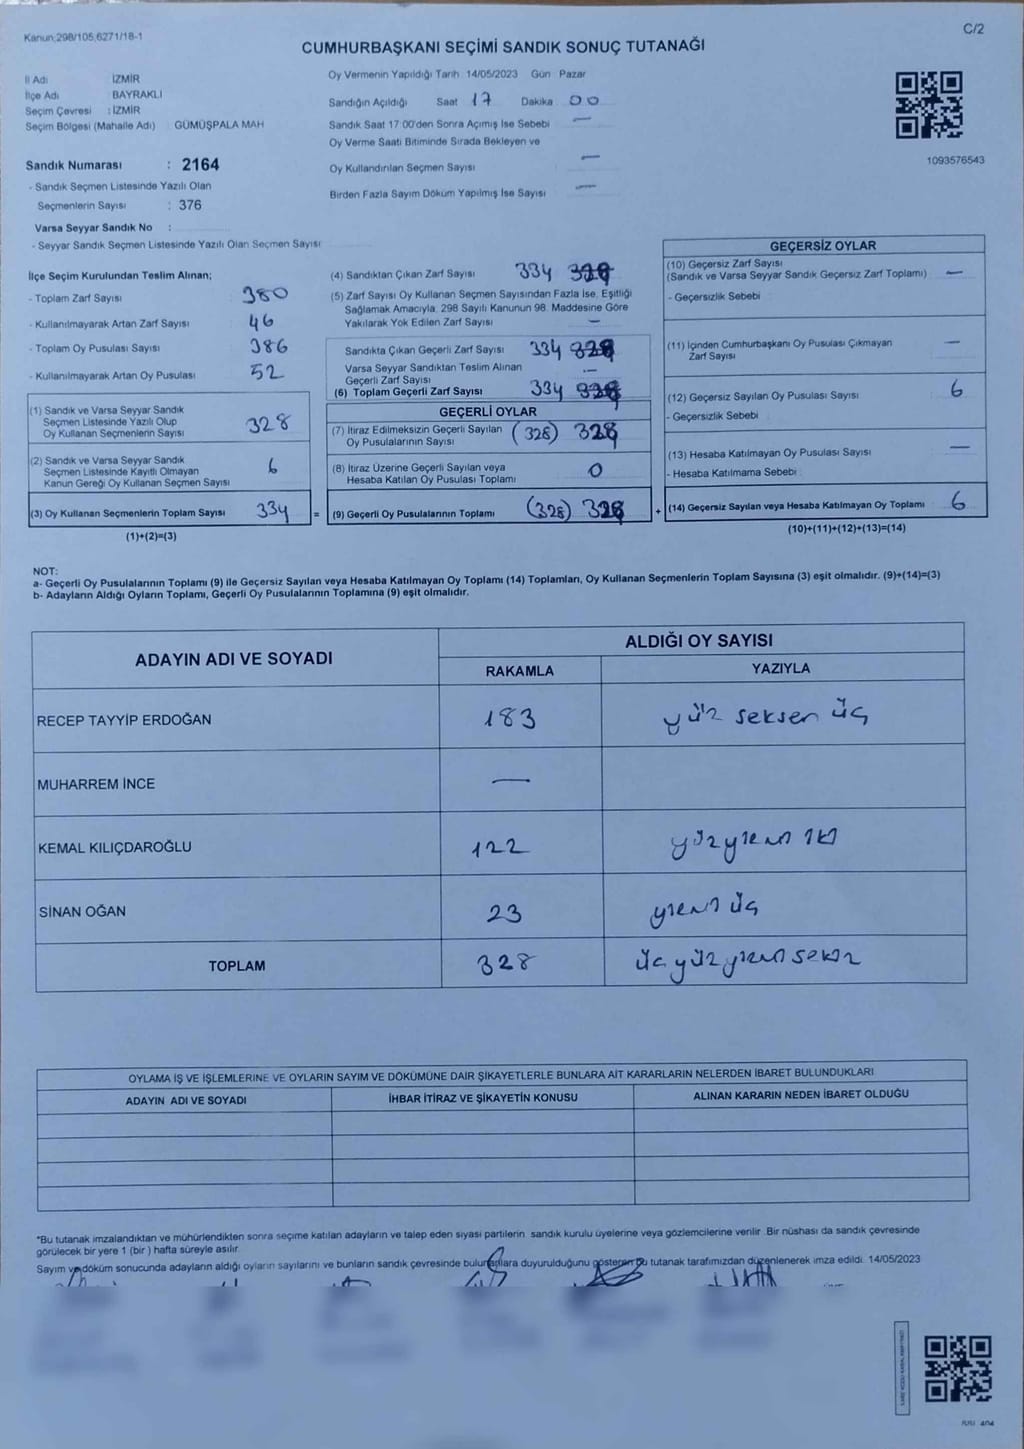 Kanun:298/105,6271/18-1
C/2
CUMHURBAŞKANI SEÇİMİ SANDIK SONUÇ TUTANAĞI
İl Adı İZMİR
İlçe Adı BAYRAKLI
Seçim Çevresi : İZMİR
Seçim Bölgesi (Mahalle Adı) GÜMÜŞPALA MAH
Oy Vermenin Yapıldığı Tarih 14/05/2023 Gün Pazar
Sandığın Açıldığı Saat 17 Dakika 00
Sandık Saat 17:00'den Sonra Açımış İse Sebebi —
Oy Verme Saati Bitiminde Sırada Bekleyen ve
Oy Kullandırılan Seçmen Sayısı —
Birden Fazla Sayım Döküm Yapılmış İse Sayısı —
1093576543
Sandık Numarası : 2164
- Sandık Seçmen Listesinde Yazılı Olan
Seçmenlerin Sayısı : 376
Varsa Seyyar Sandık No :
- Seyyar Sandık Seçmen Listesinde Yazılı Olan Seçmen Sayısı
İlçe Seçim Kurulundan Teslim Alınan;
- Toplam Zarf Sayısı 380
- Kullanılmayarak Artan Zarf Sayısı 46
- Toplam Oy Pusulası Sayısı 386
- Kullanılmayarak Artan Oy Pusulası 52
(1) Sandık ve Varsa Seyyar Sandık
Seçmen Listesinde Yazılı Olup
Oy Kullanan Seçmenlerin Sayısı 328
(2) Sandık ve Varsa Seyyar Sandık
Seçmen Listesinde Kayıtlı Olmayan
Kanun Gereği Oy Kullanan Seçmen Sayısı 6
(3) Oy Kullanan Seçmenlerin Toplam Sayısı 334
(1)+(2)=(3)
(4) Sandıktan Çıkan Zarf Sayısı 334
(5) Zarf Sayısı Oy Kullanan Seçmen Sayısından Fazla İse, Eşitliği
Sağlamak Amacıyla, 298 Sayılı Kanunun 98. Maddesine Göre
Yakılarak Yok Edilen Zarf Sayısı —
Sandıkta Çıkan Geçerli Zarf Sayısı 334
Varsa Seyyar Sandıktan Teslim Alınan
Geçerli Zarf Sayısı —
(6) Toplam Geçerli Zarf Sayısı 334
GEÇERLİ OYLAR
(7) İtiraz Edilmeksizin Geçerli Sayılan
Oy Pusulalarının Sayısı (328) 328
(8) İtiraz Üzerine Geçerli Sayılan veya
Hesaba Katılan Oy Pusulası Toplamı 0
= (9) Geçerli Oy Pusulalarının Toplamı (328) 328
GEÇERSİZ OYLAR
(10) Geçersiz Zarf Sayısı
(Sandık ve Varsa Seyyar Sandık Geçersiz Zarf Toplamı) —
- Geçersizlik Sebebi
(11) İçinden Cumhurbaşkanı Oy Pusulası Çıkmayan
Zarf Sayısı —
(12) Geçersiz Sayılan Oy Pusulası Sayısı 6
- Geçersizlik Sebebi
(13) Hesaba Katılmayan Oy Pusulası Sayısı —
- Hesaba Katılmama Sebebi
+ (14) Geçersiz Sayılan veya Hesaba Katılmayan Oy Toplamı 6
(10)+(11)+(12)+(13)=(14)
NOT:
a- Geçerli Oy Pusulalarının Toplamı (9) ile Geçersiz Sayılan veya Hesaba Katılmayan Oy Toplamı (14) Toplamları, Oy Kullanan Seçmenlerin Toplam Sayısına (3) eşit olmalıdır. (9)+(14)=(3)
b- Adayların Aldığı Oyların Toplamı, Geçerli Oy Pusulalarının Toplamına (9) eşit olmalıdır.
ADAYIN ADI VE SOYADI
ALDIĞI OY SAYISI
RAKAMLA YAZIYLA
RECEP TAYYİP ERDOĞAN 183 yüz seksen üç
MUHARREM İNCE —
KEMAL KILIÇDAROĞLU 122 yüzyirmi iki
SİNAN OĞAN 23 yirmi üç
TOPLAM 328 üç yüz yirmi sekiz
OYLAMA İŞ VE İŞLEMLERİNE VE OYLARIN SAYIM VE DÖKÜMÜNE DAİR ŞİKAYETLERLE BUNLARA AİT KARARLARIN NELERDEN İBARET BULUNDUKLARI
ADAYIN ADI VE SOYADI İHBAR İTİRAZ VE ŞİKAYETİN KONUSU ALINAN KARARIN NEDEN İBARET OLDUĞU
*Bu tutanak imzalandıktan ve mühürlendikten sonra seçime katılan adayların ve talep eden siyasi partilerin sandık kurulu üyelerine veya gözlemcilerine verilir. Bir nüshası da sandık çevresinde
görülecek bir yere 1 (bir ) hafta süreyle asılır.
Sayım ve döküm sonucunda adayların aldığı oyların sayılarını ve bunların sandık çevresinde bulunanlara duyurulduğunu gösteren bu tutanak tarafımızdan düzenlenerek imza edildi. 14/05/2023